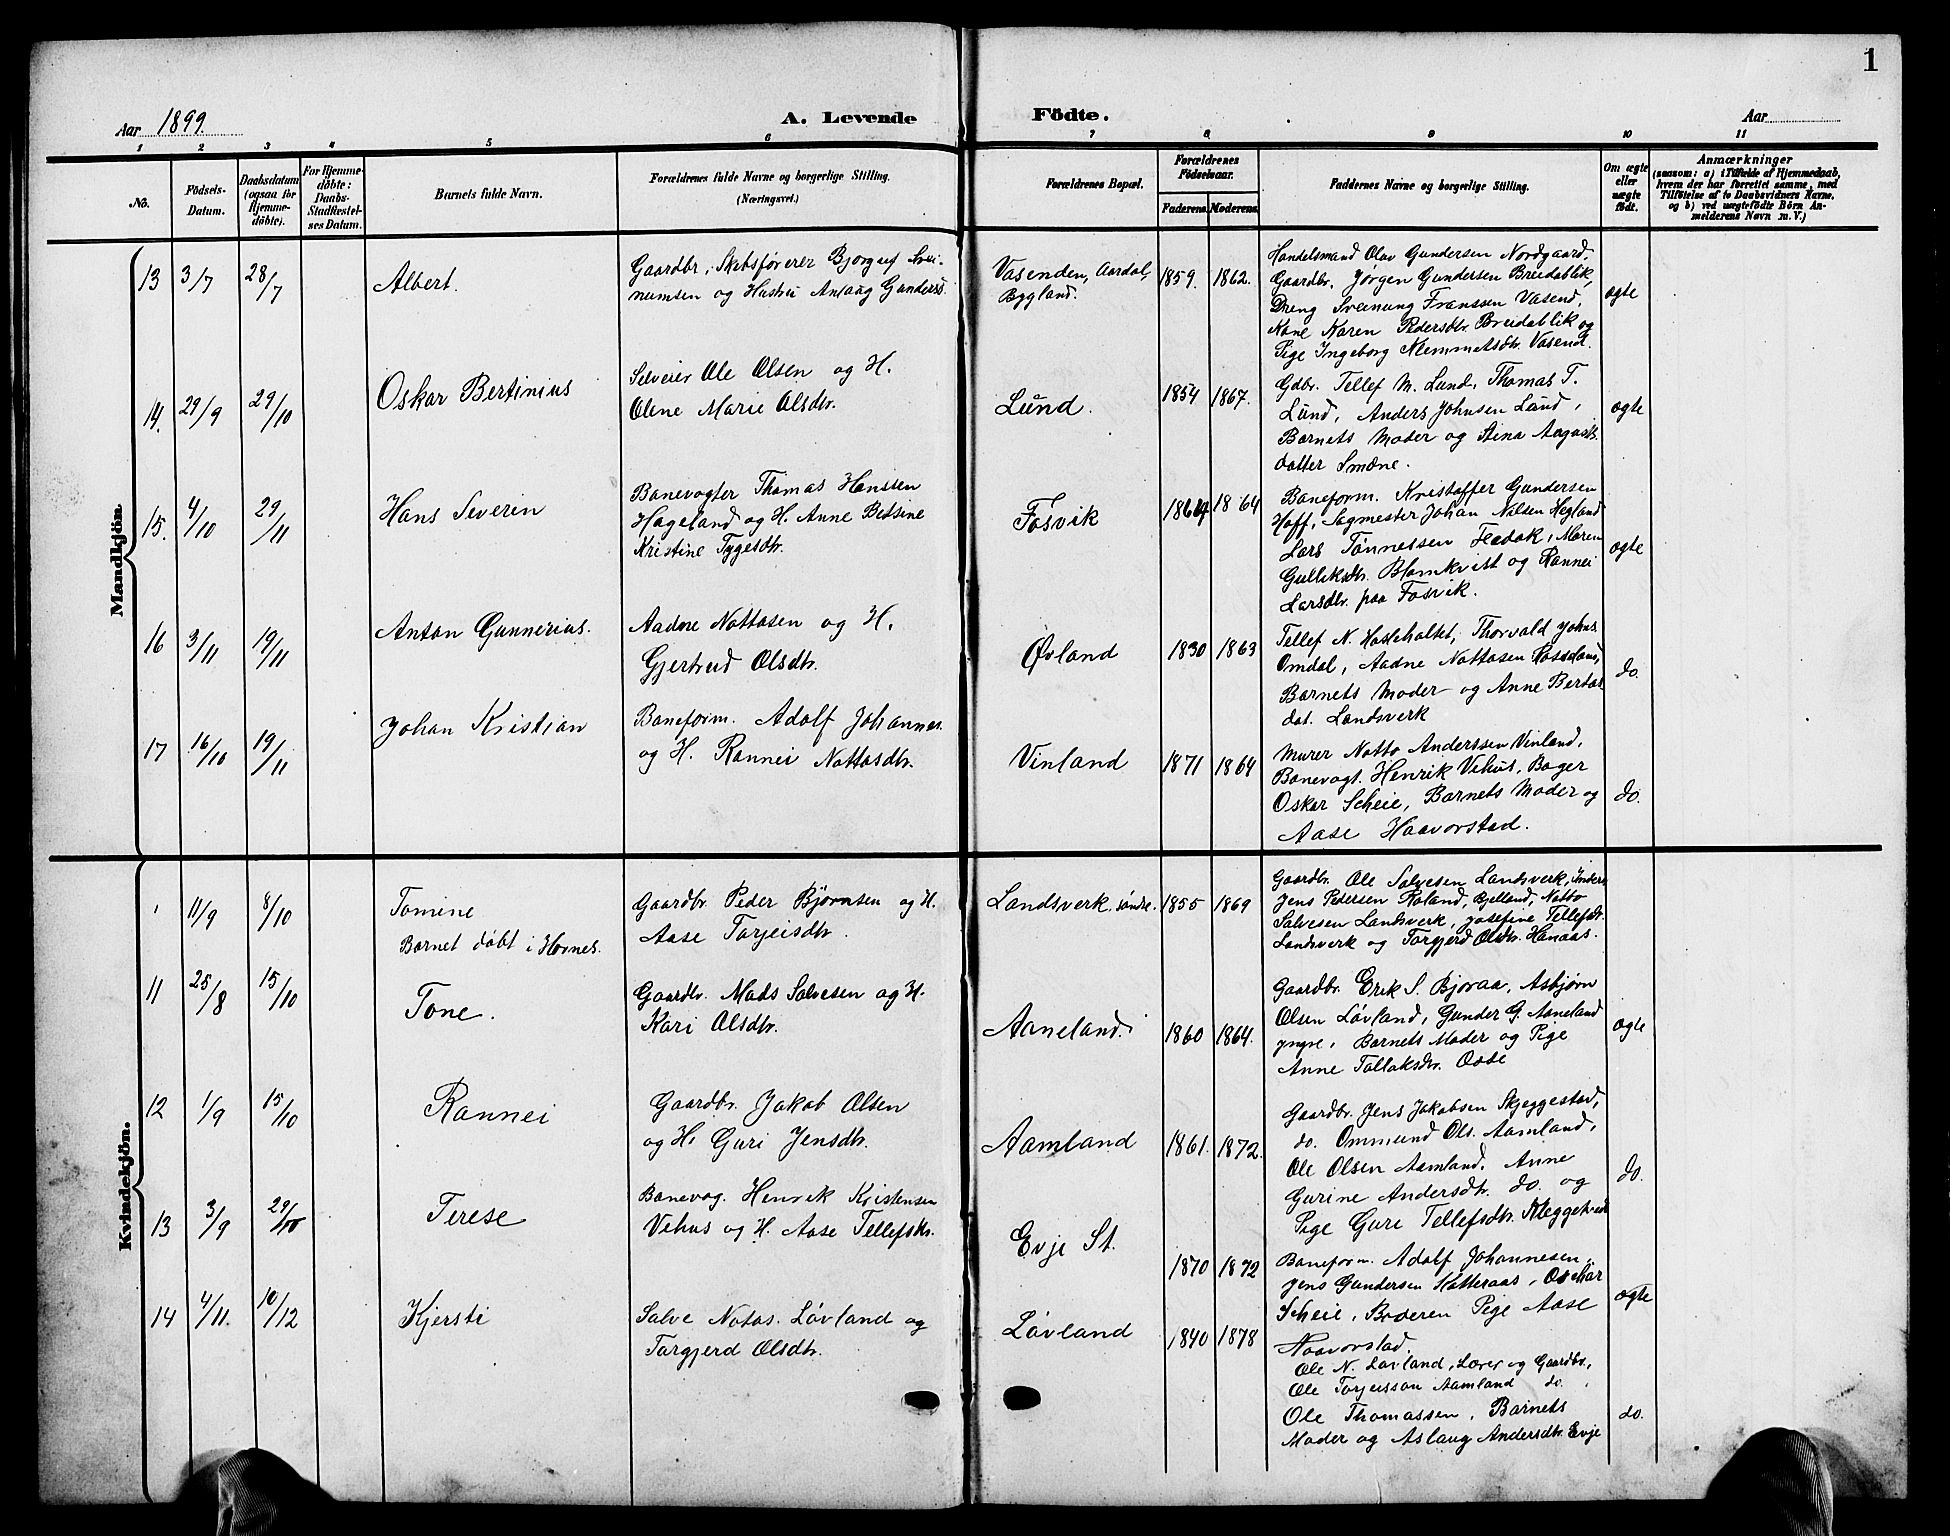 1
Aar 1899.
A. Levende Födte.
Aar
1 2 3 4 5 6 7 8 9 10 11
No.
Födsels-
Datum.
Daabsdatum
(ogsaa for
Hjemme-
döbte).
For Hjemme-
döbte:
Daabs-
Stadfæstel-
ses Datum.
Barnets fulde Navn.
Forældrenes fulde Navne og borgerlige Stilling.
(Næringsvei.)
Forældrenes Bopæl.
Forældrenes
Födselsaar.
Faderens. Moderens.
Faddernes Navne og borgerlige Stilling.
Om ægte
eller
uægte
født.
Anmærkninger
(saasom: a) i Tilfælde af Hjemmedaab,
hvem der har forrettet samme, med
Tilföielse af to Daabsvidners Navne,
og b) ved uægtefödte Börn An-
melderens Navn m. V.)
Mandkjön.
13 3/7 28/7 Albert.
Gaardbr., Skibsfører Bjorguf Svei-
numsen og Hustru Anlaug Gunders.
Vasenden, Aardal,
Bygland.
1859. 1862.
Handelsmand Olav Gundersen Nordgaard,
Gaardbr. Jørgen Gundersen Breidablik,
Dreng Sveinung Franssen Vasend,
Kone Karen Pedersdtr. Breidablik og
Pige Ingeborg Klemmetsdtr. Vasend.
ægte
14. 29/9 29/10 Oskar Bertinius
Selveier Ole Olsen og H.
Oline Marie Olsdtr.
Lund.
1854 1867.
Gdbr. Tellef M. Lund, Thomas T.
Lund, Anders Johnsen Lund,
Barnets Moder og Stina August-
datter Smæne.
ægte
15. 4/10 29/11 Hans Severin
Banevogter Thomas Hanssen
Hageland og H. Anne Betsine
Kristine Tygesdtr.
Fosvik
1864 1864
Baneform. Kristoffer Gundersen
Hoff, Sagmester Johan Nilsen Hegland
Lars Tønnessen Fedak, Maren
Gulliksdtr. Blomkvist og Rannei
Larsdtr. paa Fosvik.
ægte
16 3/11 19/11 Anton Gunnerius.
Aadne Nottosen og H.
Gjertrud Olsdtr.
Øvland
1830 1863
Tellef N. Hasleholtet, Thorvald Johns.
Omdal, Aadne Nottosen
Barnets Moder og Anne Bertas
dat. Landsverk
do.
17 16/10 19/11 Johan Kristian
Baneform. Adolf Johannes.
og H. Rannei Nottosdtr.
Vinland
1871 1864
Murer Notto Anderssen Vinland,
Banevogt. Henrik Vehus, Bager
Oskar Scheie, Barnets Moder og
Aase Haavorstad.
do.
Kvindekjön.
11/9 8/10 Tomine
Barnet døbt i Hornes.
Gaardbr. Peder Bjørnsen og H.
Aase Torjeisdtr.
Landsverk, søndre.
1855 1869
Gaardbr. Ole Salvesen Landsverk, Inders
Jens Pedersen Roland, Bjelland, Notto
Salvesen Landsverk, Josefine Tellefsdt.
Landsverk og Torgjerd Olsdtr. Hanaas.
11 25/8 15/10 Tone.
Gaardbr. Mads Salvesen og H.
Kari Olsdtr.
Aaneland.
1860 1864.
Gaardbr. Erik S. Bjoraa, Asbjørn
Olsen Løvland, Gunder G. Aaneland
yngre, Barnets Moder og Pige
Anne Tallaksdtr. Odde
ægte
12 1/9 15/10 Rannei
Gaardbr. Jakob Olsen
og H. Guri Jensdtr.
Aamland
1861. 1872.
Gaardbr. Jens Jakobsen Skjeggestad,
do. Ommund Ols. Aamland,
Ole Olsen Aamland. Anne
Gurine Andersdtr. do. og
Pige Guri Tellefsdtr.
do.
13 3/9 29/10 Terese
Banevog. Henrik Kristensen
Vehus og H. Aase Tellefsdtr.
Evje St.
1870 1872
Baneform. Adolf Johannesen,
Jens Gundersen Katteraas, Oskar
Scheie, Moderen Pige Aase
Haavorstad.
ægte
14 4/11. 10/12 Kjersti
Salve Notos. Løvland og
Torgjerd Olsdtr.
Løvland
1840 1878
Ole N. Løvland, Lærer og Gaardbr.,
Ole Torjeisson Aamland do.,
Ole Thomassen, Barnets
Moder og Aslaug Andersdtr. Evje
do.